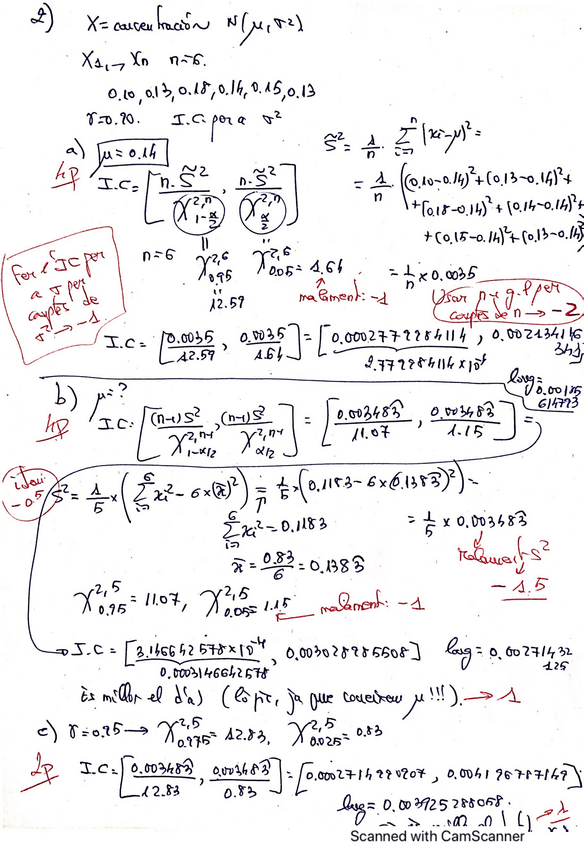 2) X = concentración N(μ, σ²)
X₁, → Xn n=6.
0.10, 0.13, 0.18, 0.14, 0.15, 0.13
γ=0.90. I.C per a σ²
a) μ = 0.14
S̃² = 1/n · Σ(i=1, n) (xi-μ)² =
4p
I.C = [n·S̃² / χ²,ⁿ 1-α/2 , n·S̃² / χ²,ⁿ α/2]
= 1/n · ((0.10-0.14)² + (0.13-0.14)² +
+ (0.18-0.14)² + (0.14-0.14)² +
+ (0.15-0.14)² + (0.13-0.14)²
n=6 χ²,⁶ 0.95 = 12.59 χ²,⁶ 0.05 = 1.64
= 1/n × 0.0035
malament: -1
Fer l'IC per a σ per comptes de σ² → -1
Usar n-1 g.l per comptes de n → -2
I.C = [0.0035/12.59 , 0.0035/1.64] = [0.0002779984114, 0.002134146341]
2.779984114×10⁻⁴
long = 0.00185614793
b) μ=?
4p
I.C: [(n-1)S² / χ²,ⁿ⁻¹ 1-α/2 , (n-1)S² / χ²,ⁿ⁻¹ α/2] = [0.003483/11.07 , 0.003483/1.15] =
-0.5
S² = 1/5 × (Σ(i=1, 6) xi² - 6 × (x̄)²) = 1/5 × (0.1183 - 6 × (0.1383)²) =
Σ(i=1, 6) xi² = 0.1183
= 1/5 × 0.003483
x̄ = 0.83/6 = 0.1383
malament S²
→ -1.5
χ²,⁵ 0.95 = 11.07, χ²,⁵ 0.05 = 1.15 malament: -1
→ I.C = [3.146642578×10⁻⁴, 0.003028985508] long = 0.00271432125
0.0003146642578
És millor el d'a) (lògic, ja que coneixem μ!!!). → 1
c) γ=0.95 → χ²,⁵ 0.975 = 12.83, χ²,⁵ 0.025 = 0.83
2p
I.C = [0.003483/12.83 , 0.003483/0.83] = [0.0002714990907, 0.004196787149]
long = 0.003925288058.
Scanned with CamScanner